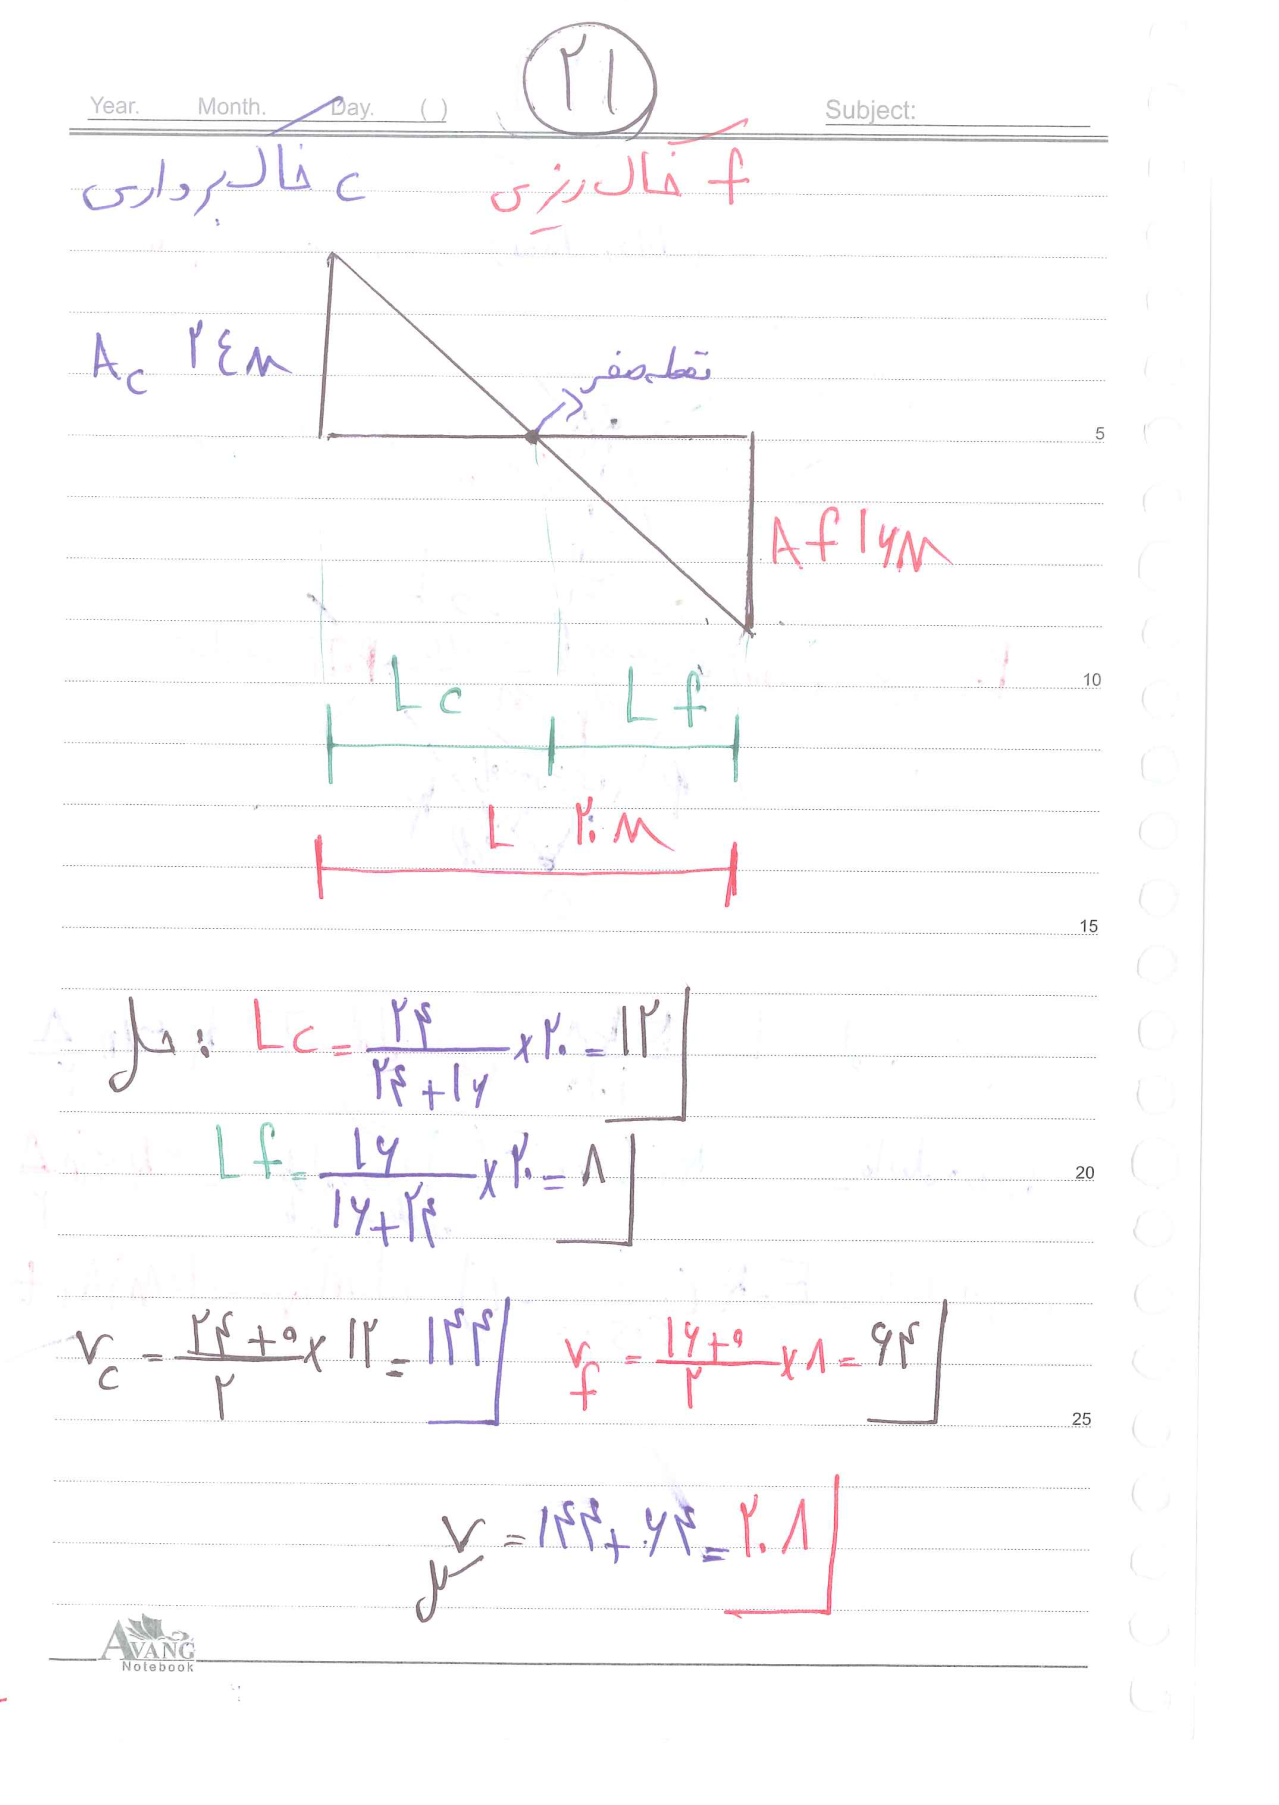 ۲۱
Year. Month. Day. ( ) Subject:
c خاک برداری f خاک ریزی
Ac ۲٤m
نقطه صفر
5
Af ۱۶m
Lc Lf
10
L ۲۰m
15
حل : Lc = ۲۴ / ۲۴+۱۶ × ۲۰ = ۱۲
Lf = ۱۶ / ۱۶+۲۴ × ۲۰ = ۸
20
Vc = ۲۴+۰ / ۲ × ۱۲ = ۱۴۴ Vf = ۱۶+۰ / ۲ × ۸ = ۶۴
25
V کل = ۱۴۴ + ۶۴ = ۲۰۸
AVANG
Notebook